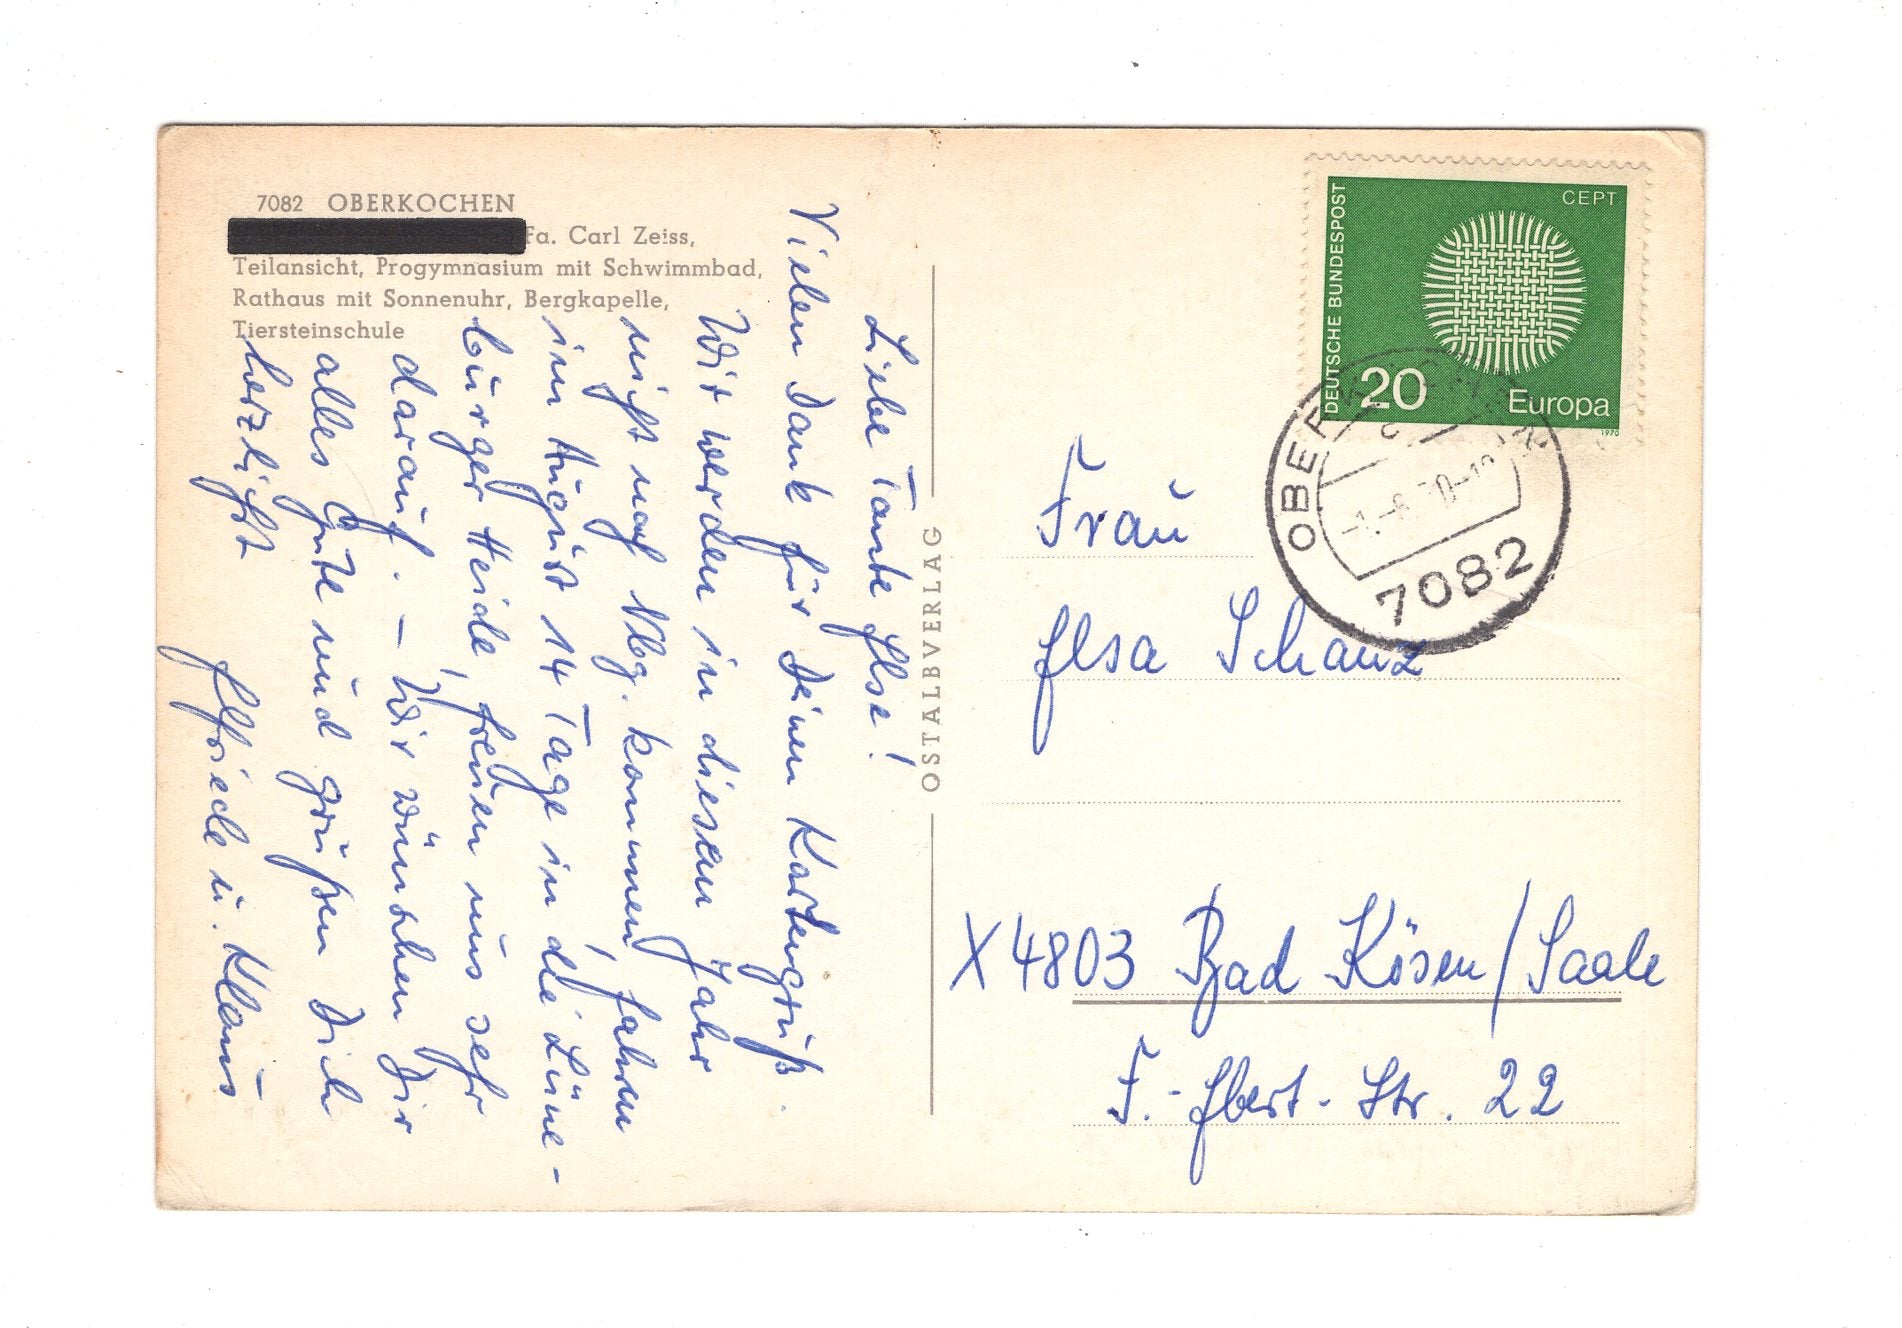 7082 OBERKOCHEN
Fa. Carl Zeiss,
Teilansicht, Progymnasium mit Schwimmbad,
Rathaus mit Sonnenuhr, Bergkapelle,
Tiersteinschule
Liebe Tante Elsa!
Vielen Dank für Deinen Kartengruß.
Wir werden in diesem Jahr
nicht nach Nbg. kommen, fahren
im August 14 Tage in die Lüne-
burger Heide, freuen uns sehr
darauf. – Wir wünschen Dir
alles Gute und grüßen Dich
herzlichst
Elfriede u. Klaus
OSTALBVERLAG
DEUTSCHE BUNDESPOST
CEPT
20 Europa
1970
7082
Frau
Elsa Schanz
X 4803 Bad Kösen/Saale
F.-Ebert-Str. 22